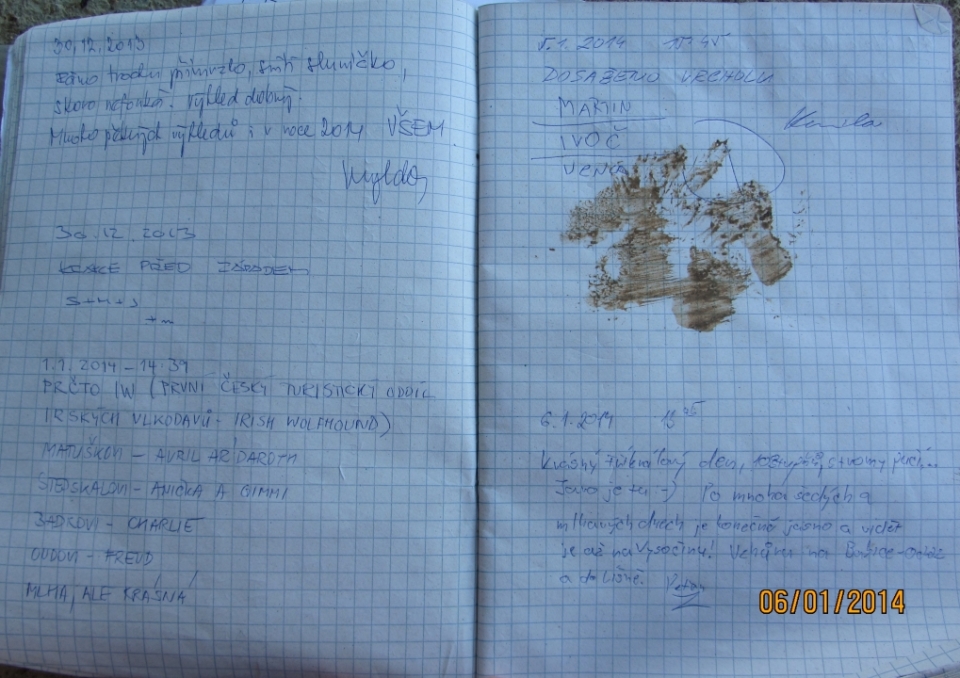 30.12.2013
Ráno trochu přimrzlo, svítí sluníčko,
skoro nefouká. Výhled dobrý.
Mnoho pěkných výhledů i v roce 2014 VŠEM
30.12.2013
PŘED
S+M+J
+M
1.1.2014 - 14:39
PRČTO IW (PRVNÍ ČESKÝ TURISTICKÝ ODDÍL
IRSKÝCH VLKODAVŮ - IRISH WOLFHOUND)
MATUŠKOVI - AVRIL AR DAROTH
ŠTĚDSKALOVI - ANIČKA A GIMMI
ZADKOVI - CHARLIE
DUDOVI - FREUD
MLHA, ALE KRÁSNÁ
5.1.2014 15:45
DOSAŽENO VRCHOLU
MARTIN
IVOČ
VENĎA
6.1.2014 13 05
Krásný tříkrálový den, stromy pučí..
Jaro je tu :-) Po mnoha šedých a
mlhavých dnech je konečně jasno a vidět
je až na Vysočinu!
a do Líšně.
06/01/2014